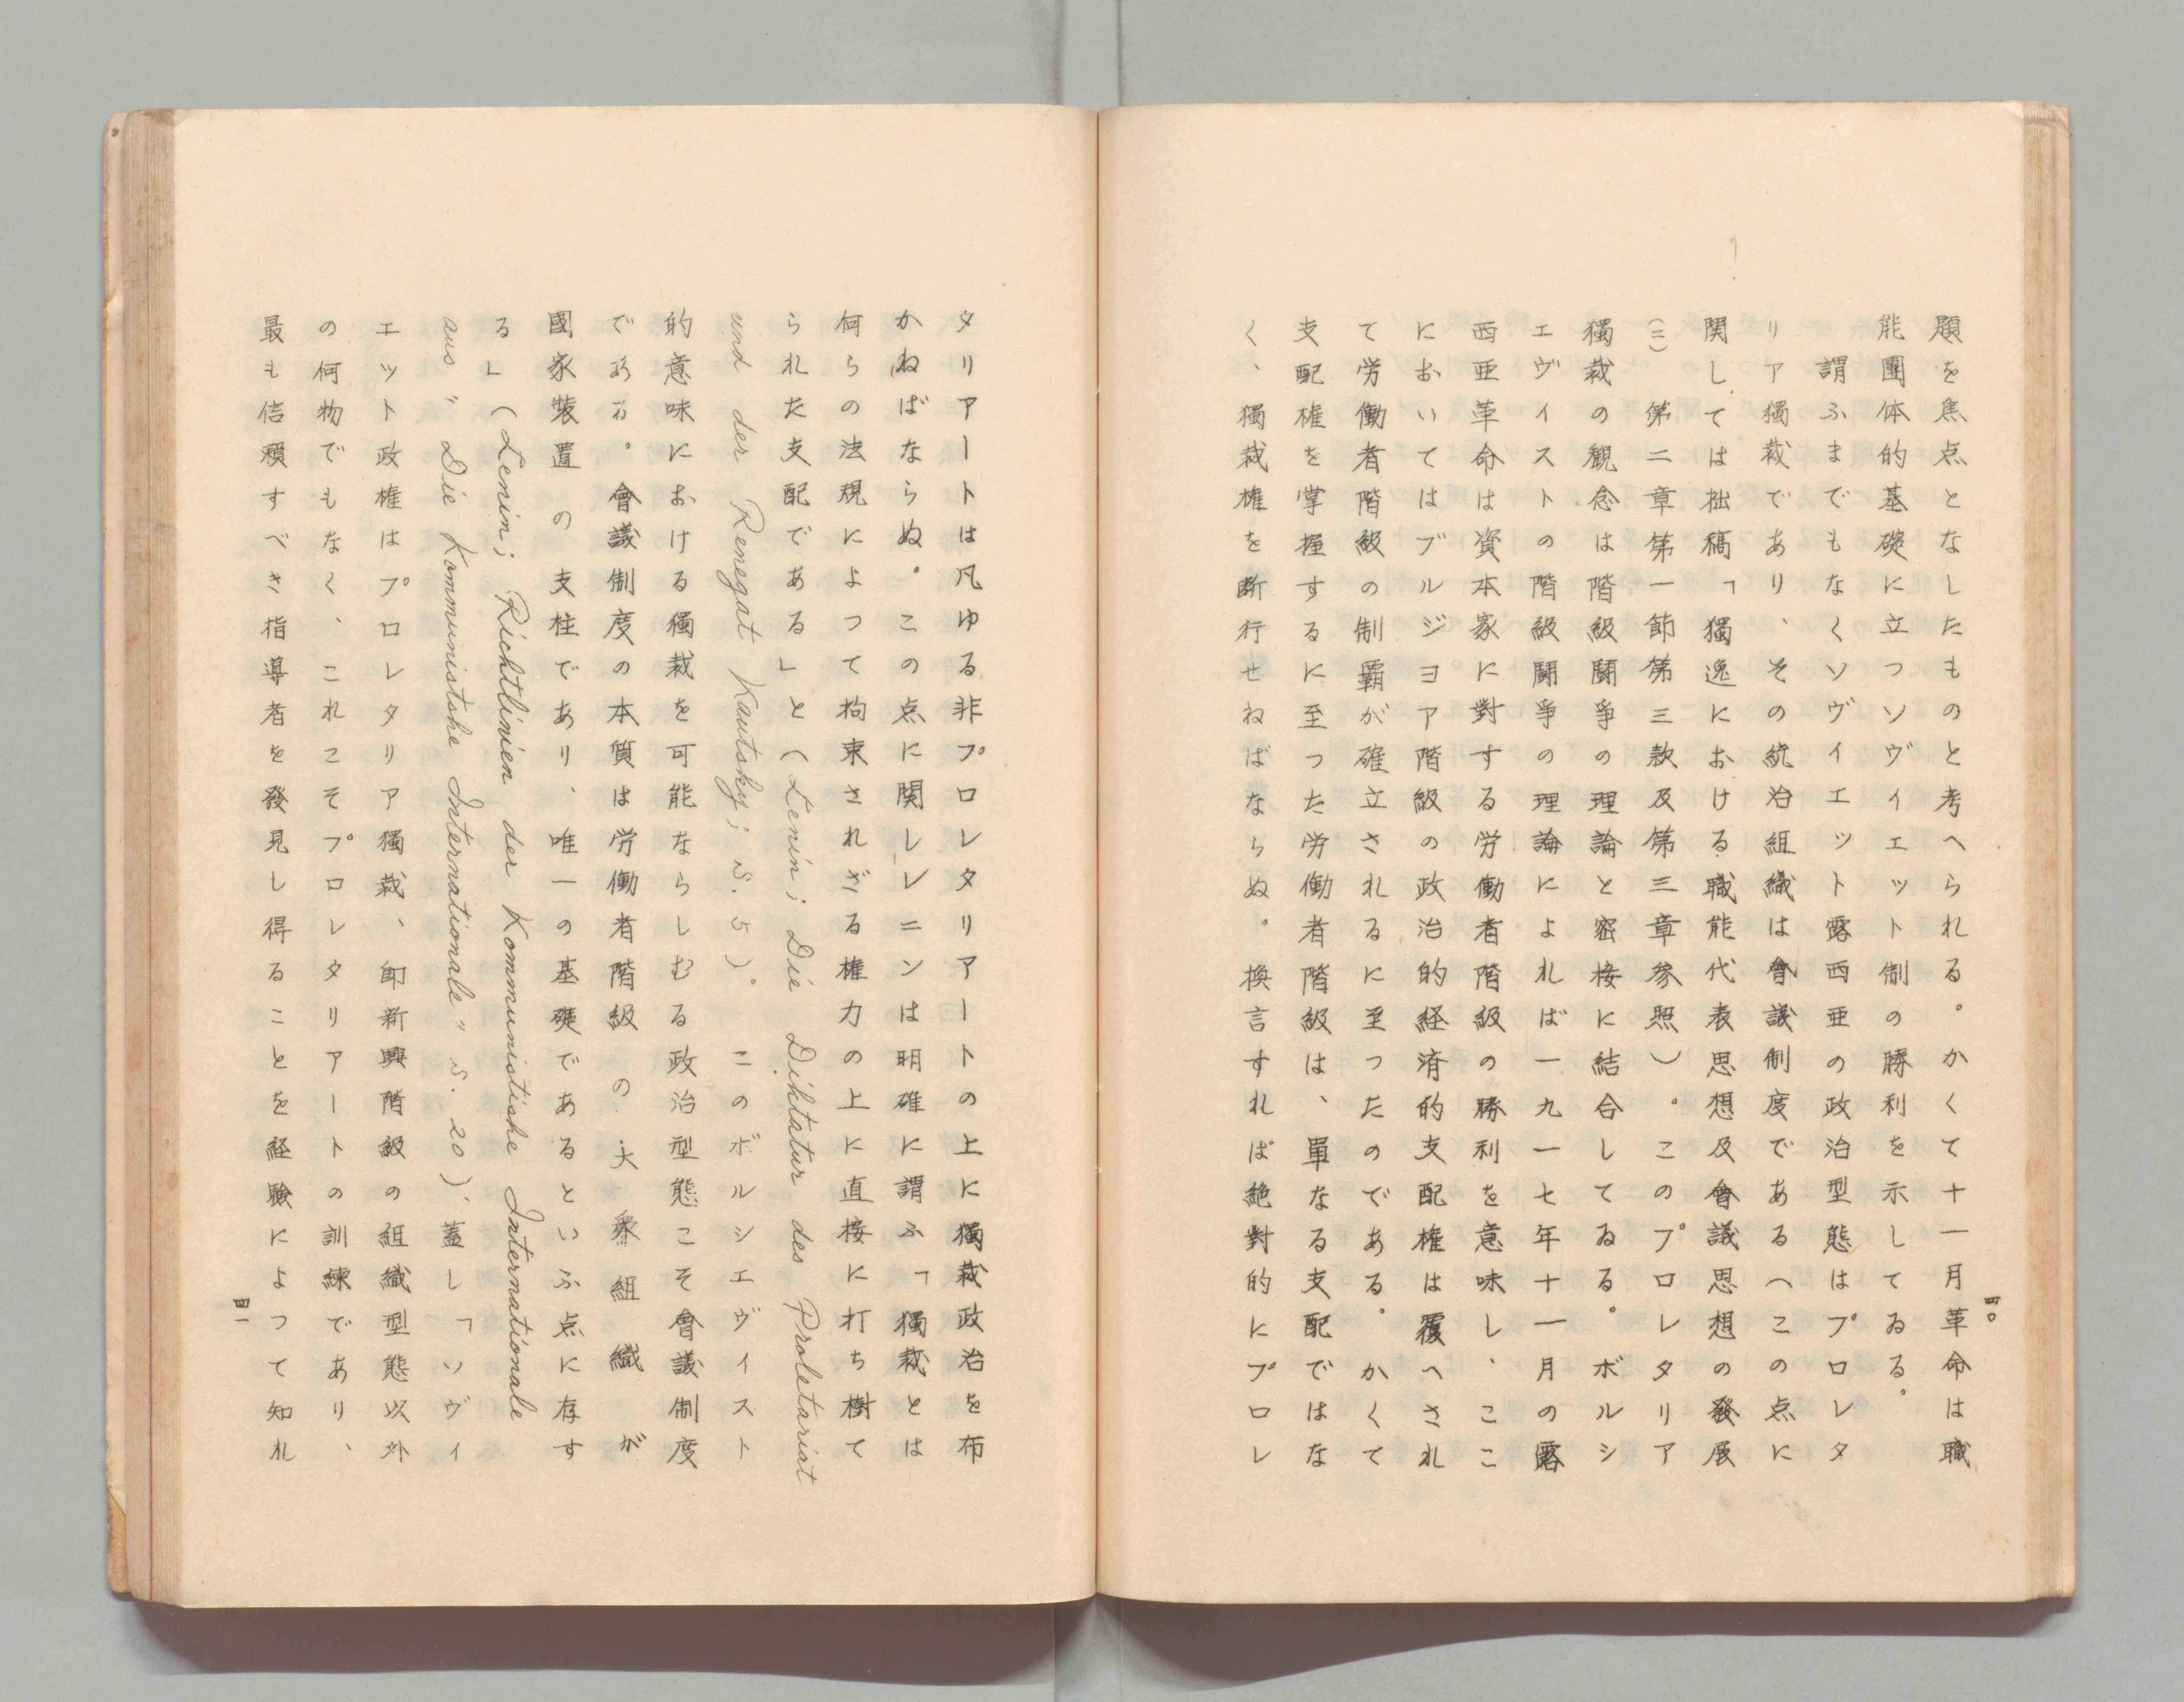 願を焦点となしたものと考へられる。かくて十一月革命は職
能團体的基礎に立つソヴィエット制の勝利を示してゐる。
謂ふまでもなくソヴイエット露西亜の政治型態はプロレタ
リア獨裁であり、その統治組織は會議制度である（この点に
関しては拙稿「獨逸における職能代表思想及會議思想の發展
(三)第二章第一節第三款及第三章参照）。このプロレタリア
獨裁の観念は階級闘争の理論と密接に結合してゐる。ボルシ
エヴイストの階級闘爭の理論によれば一九一七年十一月の露
西亜革命は資本家に對する労働者階級の勝利を意味し、ここ
においてはブルジヨア階級の政治的経済的支配権は覆へされ
て労働者階級の制覇が確立されるに至つたのである。かくて
支配権を掌握するに至つた労働者階級は、單なる支配ではな
く、獨裁権を断行せねばならぬ。換言すれば絶對的にプロレ
四〇
タリアートは凡ゆる非プロレタリアートの上に獨裁政治を布
かねばならぬ。この点に関しレニンは明確に謂ふ「獨裁とは
何らの法規によつて拘束されざる権力の上に直接に打ち樹て
られた支配である」と（Lenin; Die Diktatur des Proletariat
und der Renegat Kautsky; S. 5）。このボルシエヴイスト
的意味における獨裁を可能ならしむる政治型態こそ會議制度
である。會議制度の本質は労働者階級の大衆組織が
國家装置の支柱であり、唯一の基礎であるといふ点に存す
る」（Lenin; Richtlinien der Kommunistishe Internationale
aus "Die Kommunistshe Internationale" S. 20）、蓋し「ソヴィ
エット政権はプロレタリア獨裁、即新興階級の組織型態以外
の何物でもなく、これこそプロレタリアートの訓練であり、
最も信頼すべき指導者を發見し得ることを経験によつて知れ
四一